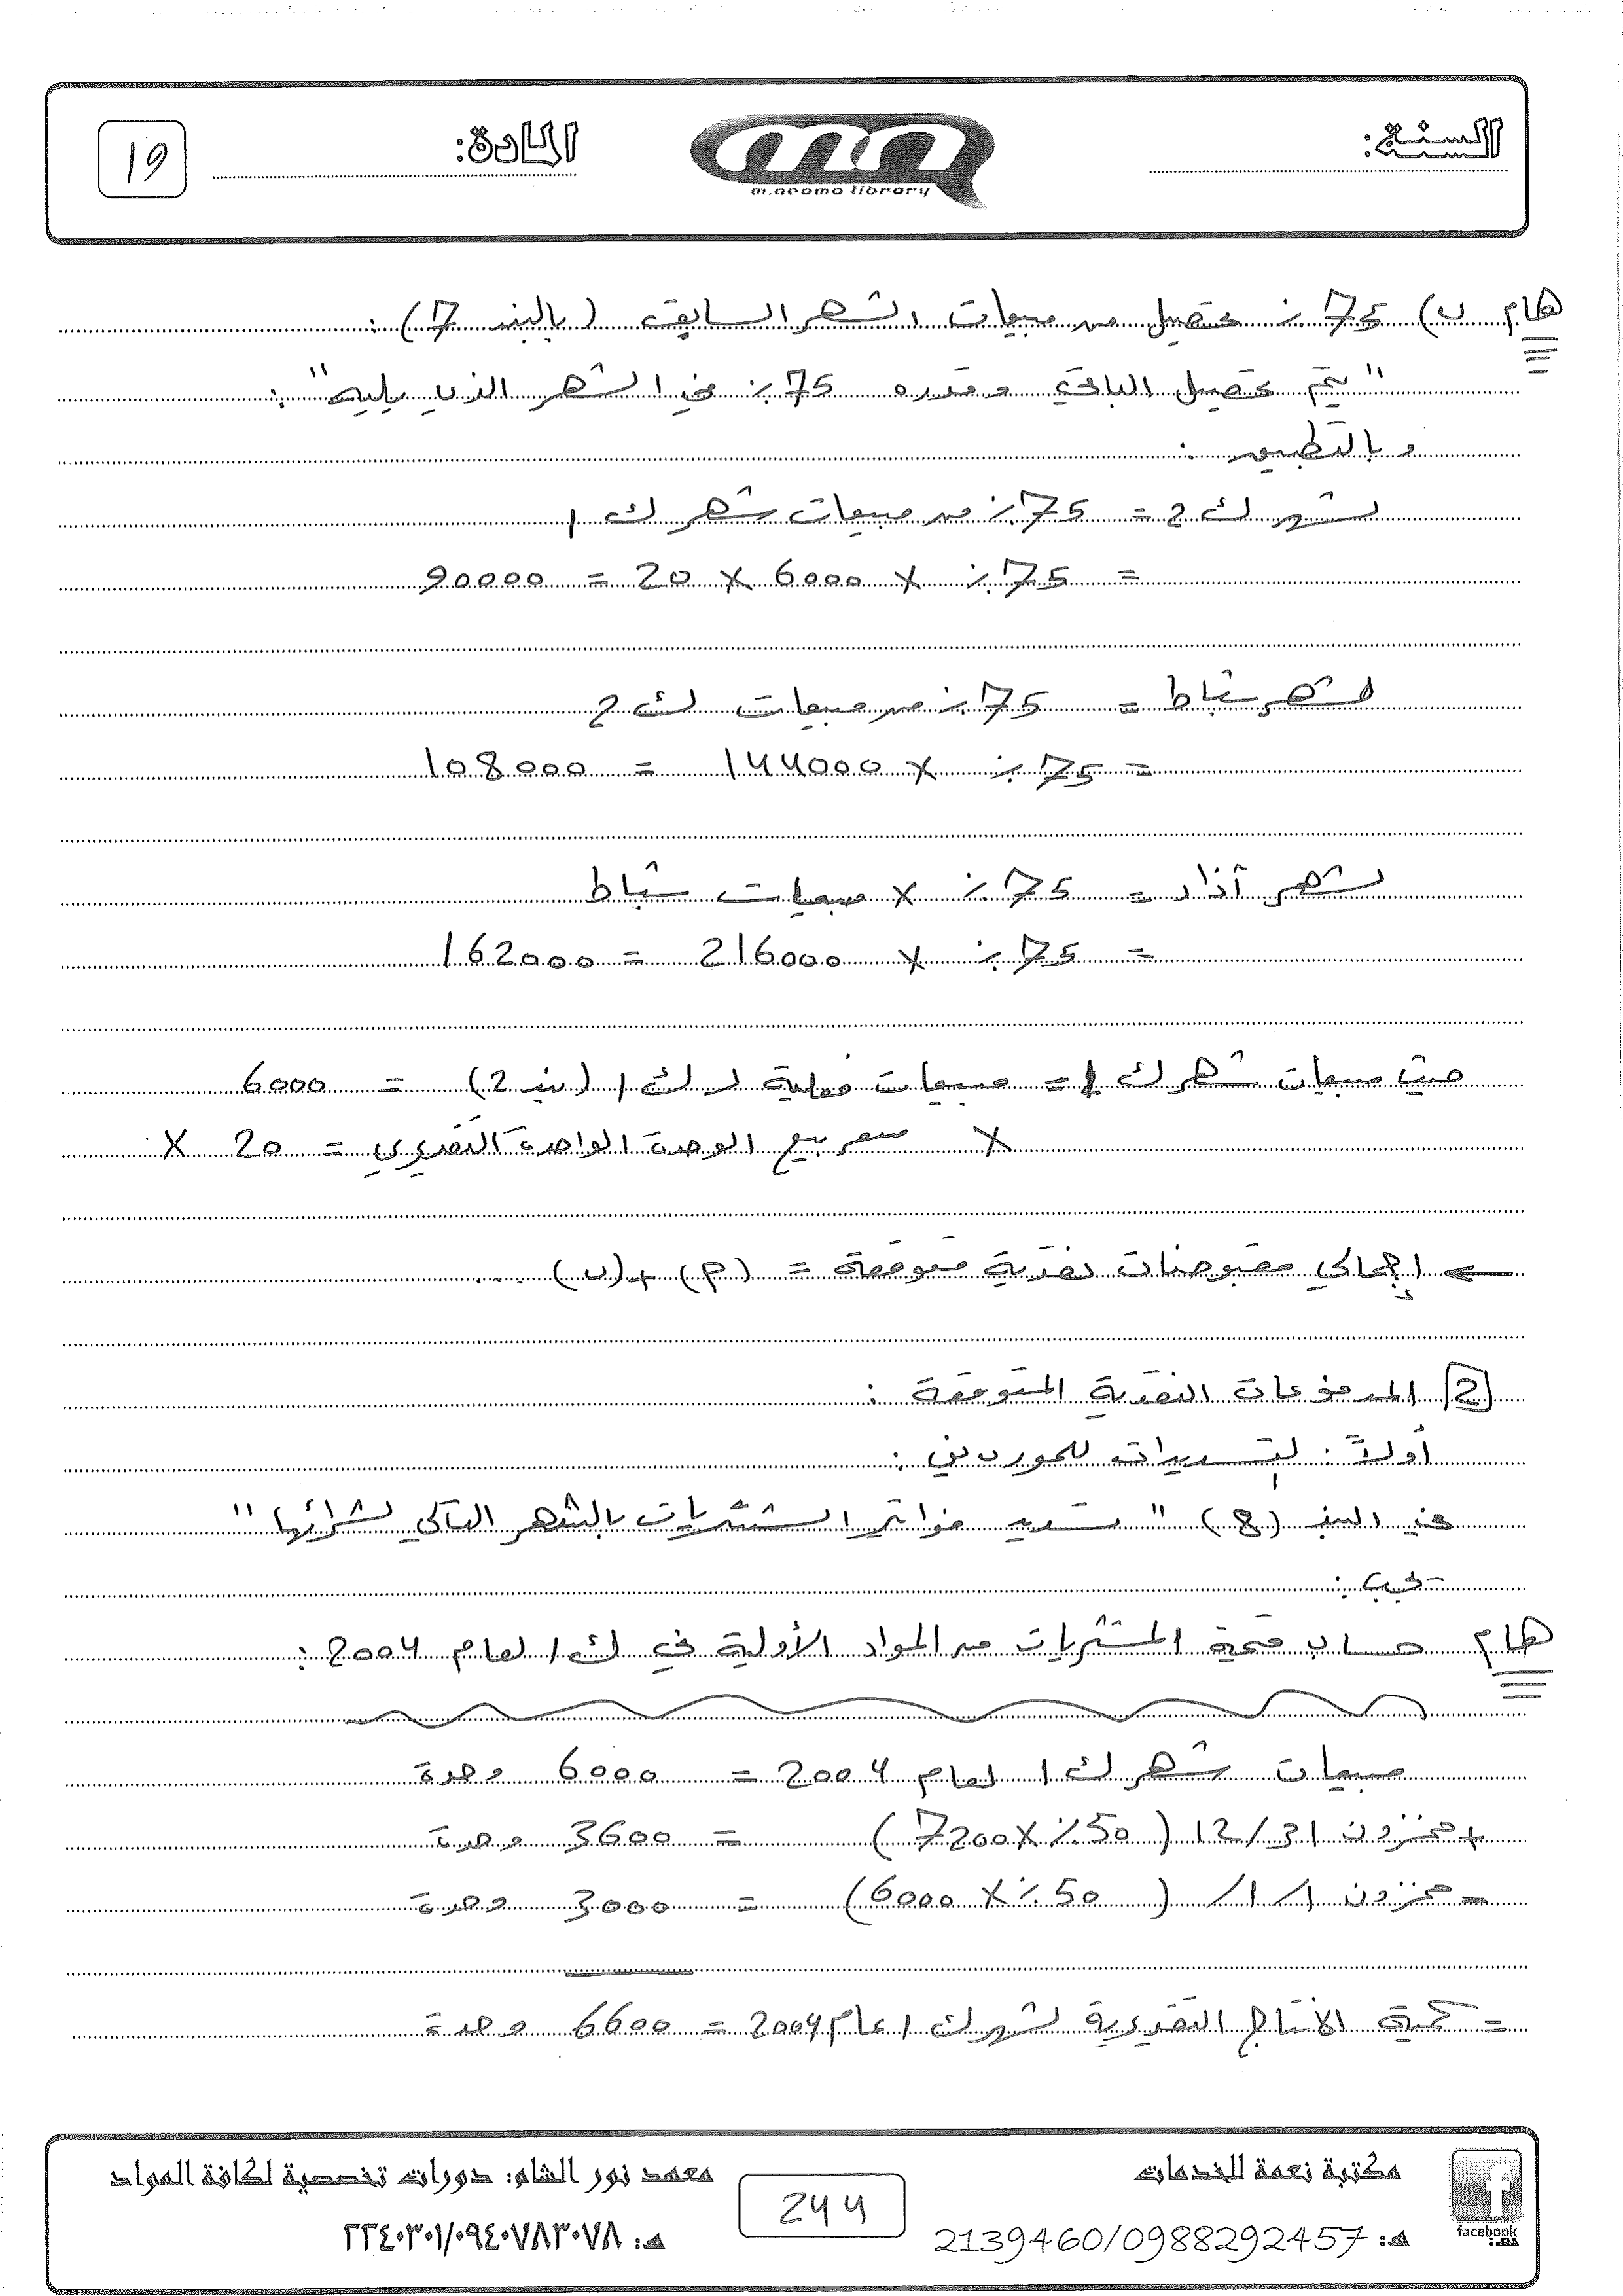 السنة:
المادة:
19
m.neama library
هام ب) 75٪ تحصيل من مبيعات الشهر السابق (بالبند 7):
"يتم تحصيل الباقي وقدره 75٪ في الشهر الذي يليه":
وبالتطبيق:
لشهر ك2 = 75٪ من مبيعات شهر ك1
= 75٪ × 6000 × 20 = 90000
لشهر شباط = 75٪ من مبيعات ك2
= 75٪ × 144000 = 108000
لشهر آذار = 75٪ × مبيعات شباط
= 75٪ × 216000 = 162000
حيث مبيعات شهر ك1 = مبيعات فعلية لـ ك1 (بند 2) = 6000
× سعر بيع الوحدة الواحدة التقديري = 20 ×
← إجمالي مقبوضات نقدية متوقعة = (م) + (ب) ....
2 المدفوعات النقدية المتوقعة:
أولاً: تسديدات للموردين:
في البند (8) "تسديد فواتير المشتريات بالشهر التالي لشرائها"
يجب:
هام حساب قيمة المشتريات من المواد الأولية في ك1 لعام 2004:
مبيعات شهر ك1 لعام 2004 = 6000 وحدة
+ مخزون 12/31 (50٪ × 7200) = 3600 وحدة
- مخزون 1/1/ (50٪ × 6000) = 3000 وحدة
= كمية الانتاج التقديرية لشهر ك1 عام 2004 = 6600 وحدة
facebook
مكتبة نعمة للخدمات
هـ: 2139460/0988292457
244
معهد نور الشام: دورات تخصصية لكافة المواد
هـ: ٢٢٤٠٣٠١/٠٩٤٠٧٨٣٠٧٨